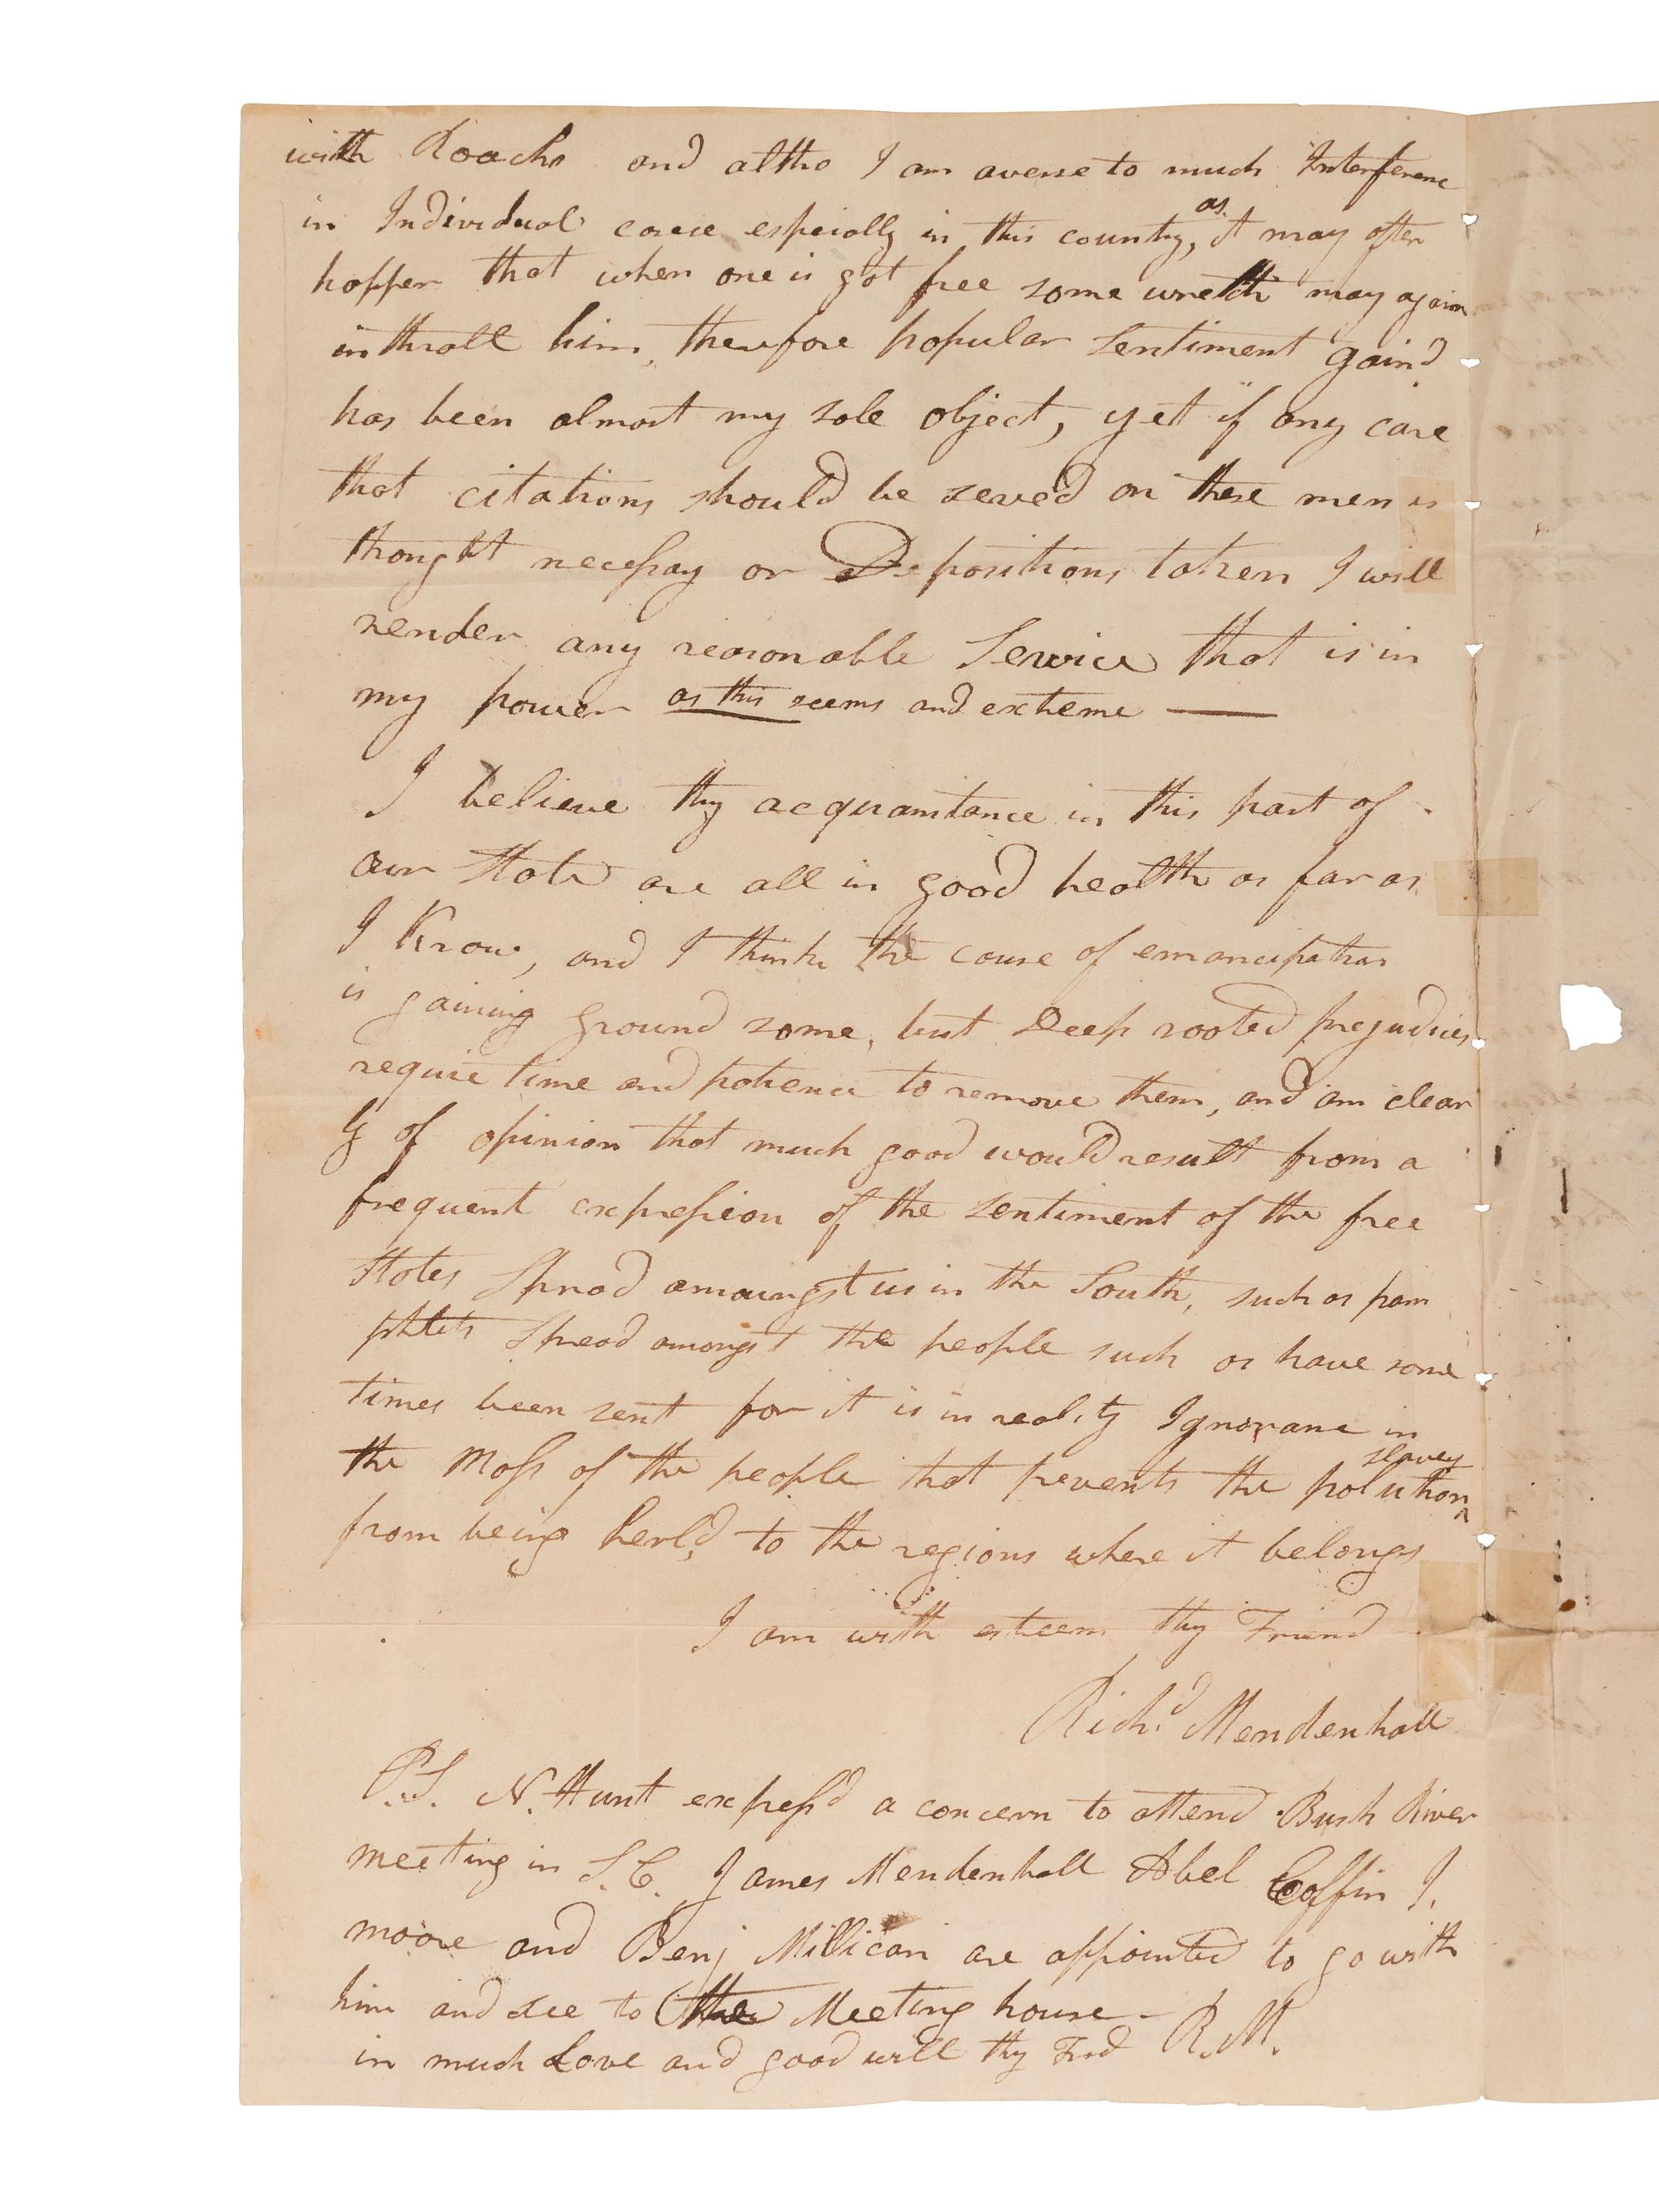 with Roachs and altho I am averse to much Interferenc
in Individual cases espicially in this country, as it may often
happen that when one is got free some wretch may again
inthrall him, therefore popular sentiment gain'd
has been almost my sole object, yet if any case
that citations should be serve'd on these men is
thought necessay or Depositions taken I will
render any reasonable Service that is in
my power as this seems and extreme —
I believe thy acquaintance in this part of
our State are all in good health as far as
I Know, and I think the cause of emancipation
is gaining ground some, but Deep rooted prejudices
require time and patience to remove them, and am clear
ly of opinion that much good would result from a
frequent expression of the sentiment of the free
States Spread amoungst us in the South, such as pam
phlets Spread amongst the people such as have some
times been sent for it is in reality Ignorance in
the Mass of the people that prevents the polution slavey
from being herl'd to the regions where it belongs
I am with esteem thy Friend
Richd Mendenhall
P.S. N. Hunt express'd a concern to attend Bush River
meeting in S.C. James Mendenhall Abel Coffin J.
moore and Benj Millican are appointed to go with
him and see to the Meeting house —
in much Love and good will thy Frd R.M.